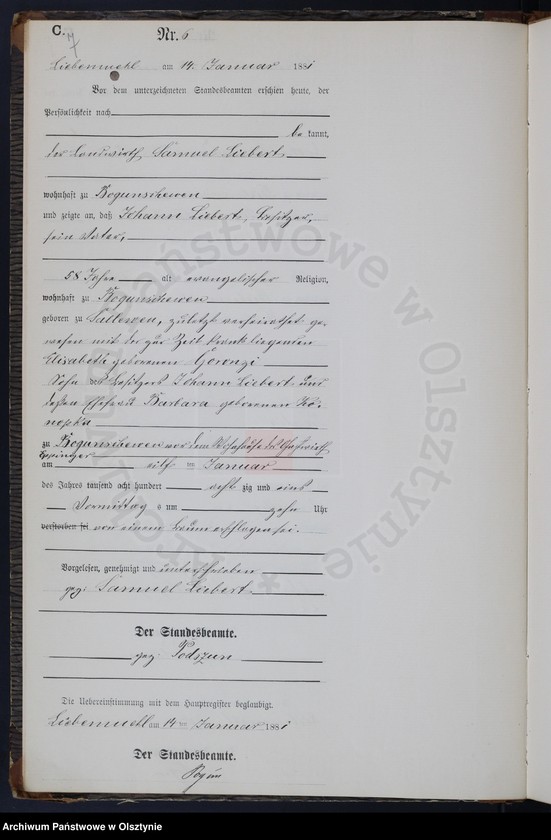 C.
7
Nr. 6
Liebemuehl am 14. Januar 1881
Vor dem unterzeichneten Standesbeamten erschien heute, der
Persönlichkeit nach
be kannt,
der Landwirth Samuel Liebert
wohnhaft zu Bogunschewen
und zeigte an, daß Johann Liebert, Besitzer,
sein Vater,
58 Jahre alt evangelischer Religion,
wohnhaft zu Bogunschewen
geboren zu Sallewen, zuletzt verheirathet ge-
wesen mit der zur Zeit krank liegenden
Elisabeth geborenen Gorenzi
Sohn des Besitzers Johann Liebert und
dessen Ehefrau Barbara geborenen
zu Bogunschewen vor dem
am elften Januar
des Jahres tausend acht hundert acht zig und eins
Vormittag s um zehn Uhr
verstorben sei von einem Baum erschlagen sei.
Vorgelesen, genehmigt und unterschrieben
gez: Samuel Liebert
Der Standesbeamte.
gez: Podszun
Die Uebereinstimmung mit dem Hauptregister beglaubigt.
Liebemuehl am 14ten Januar 1881
Der Standesbeamte.
Archiwum Państwowe w Olsztynie
Archiwum Państwowe w Olsztynie